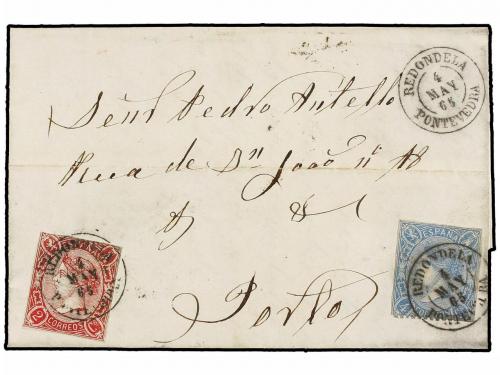 REDONDELA
4
MAY
65
PONTEVEDRA
Señr Pedro Antello
Rua de Dn João nº 18
Porto
REDONDELA
4
MAY
65
2 CORREOS
ESPAÑA
REDONDELA
4
MAY
65